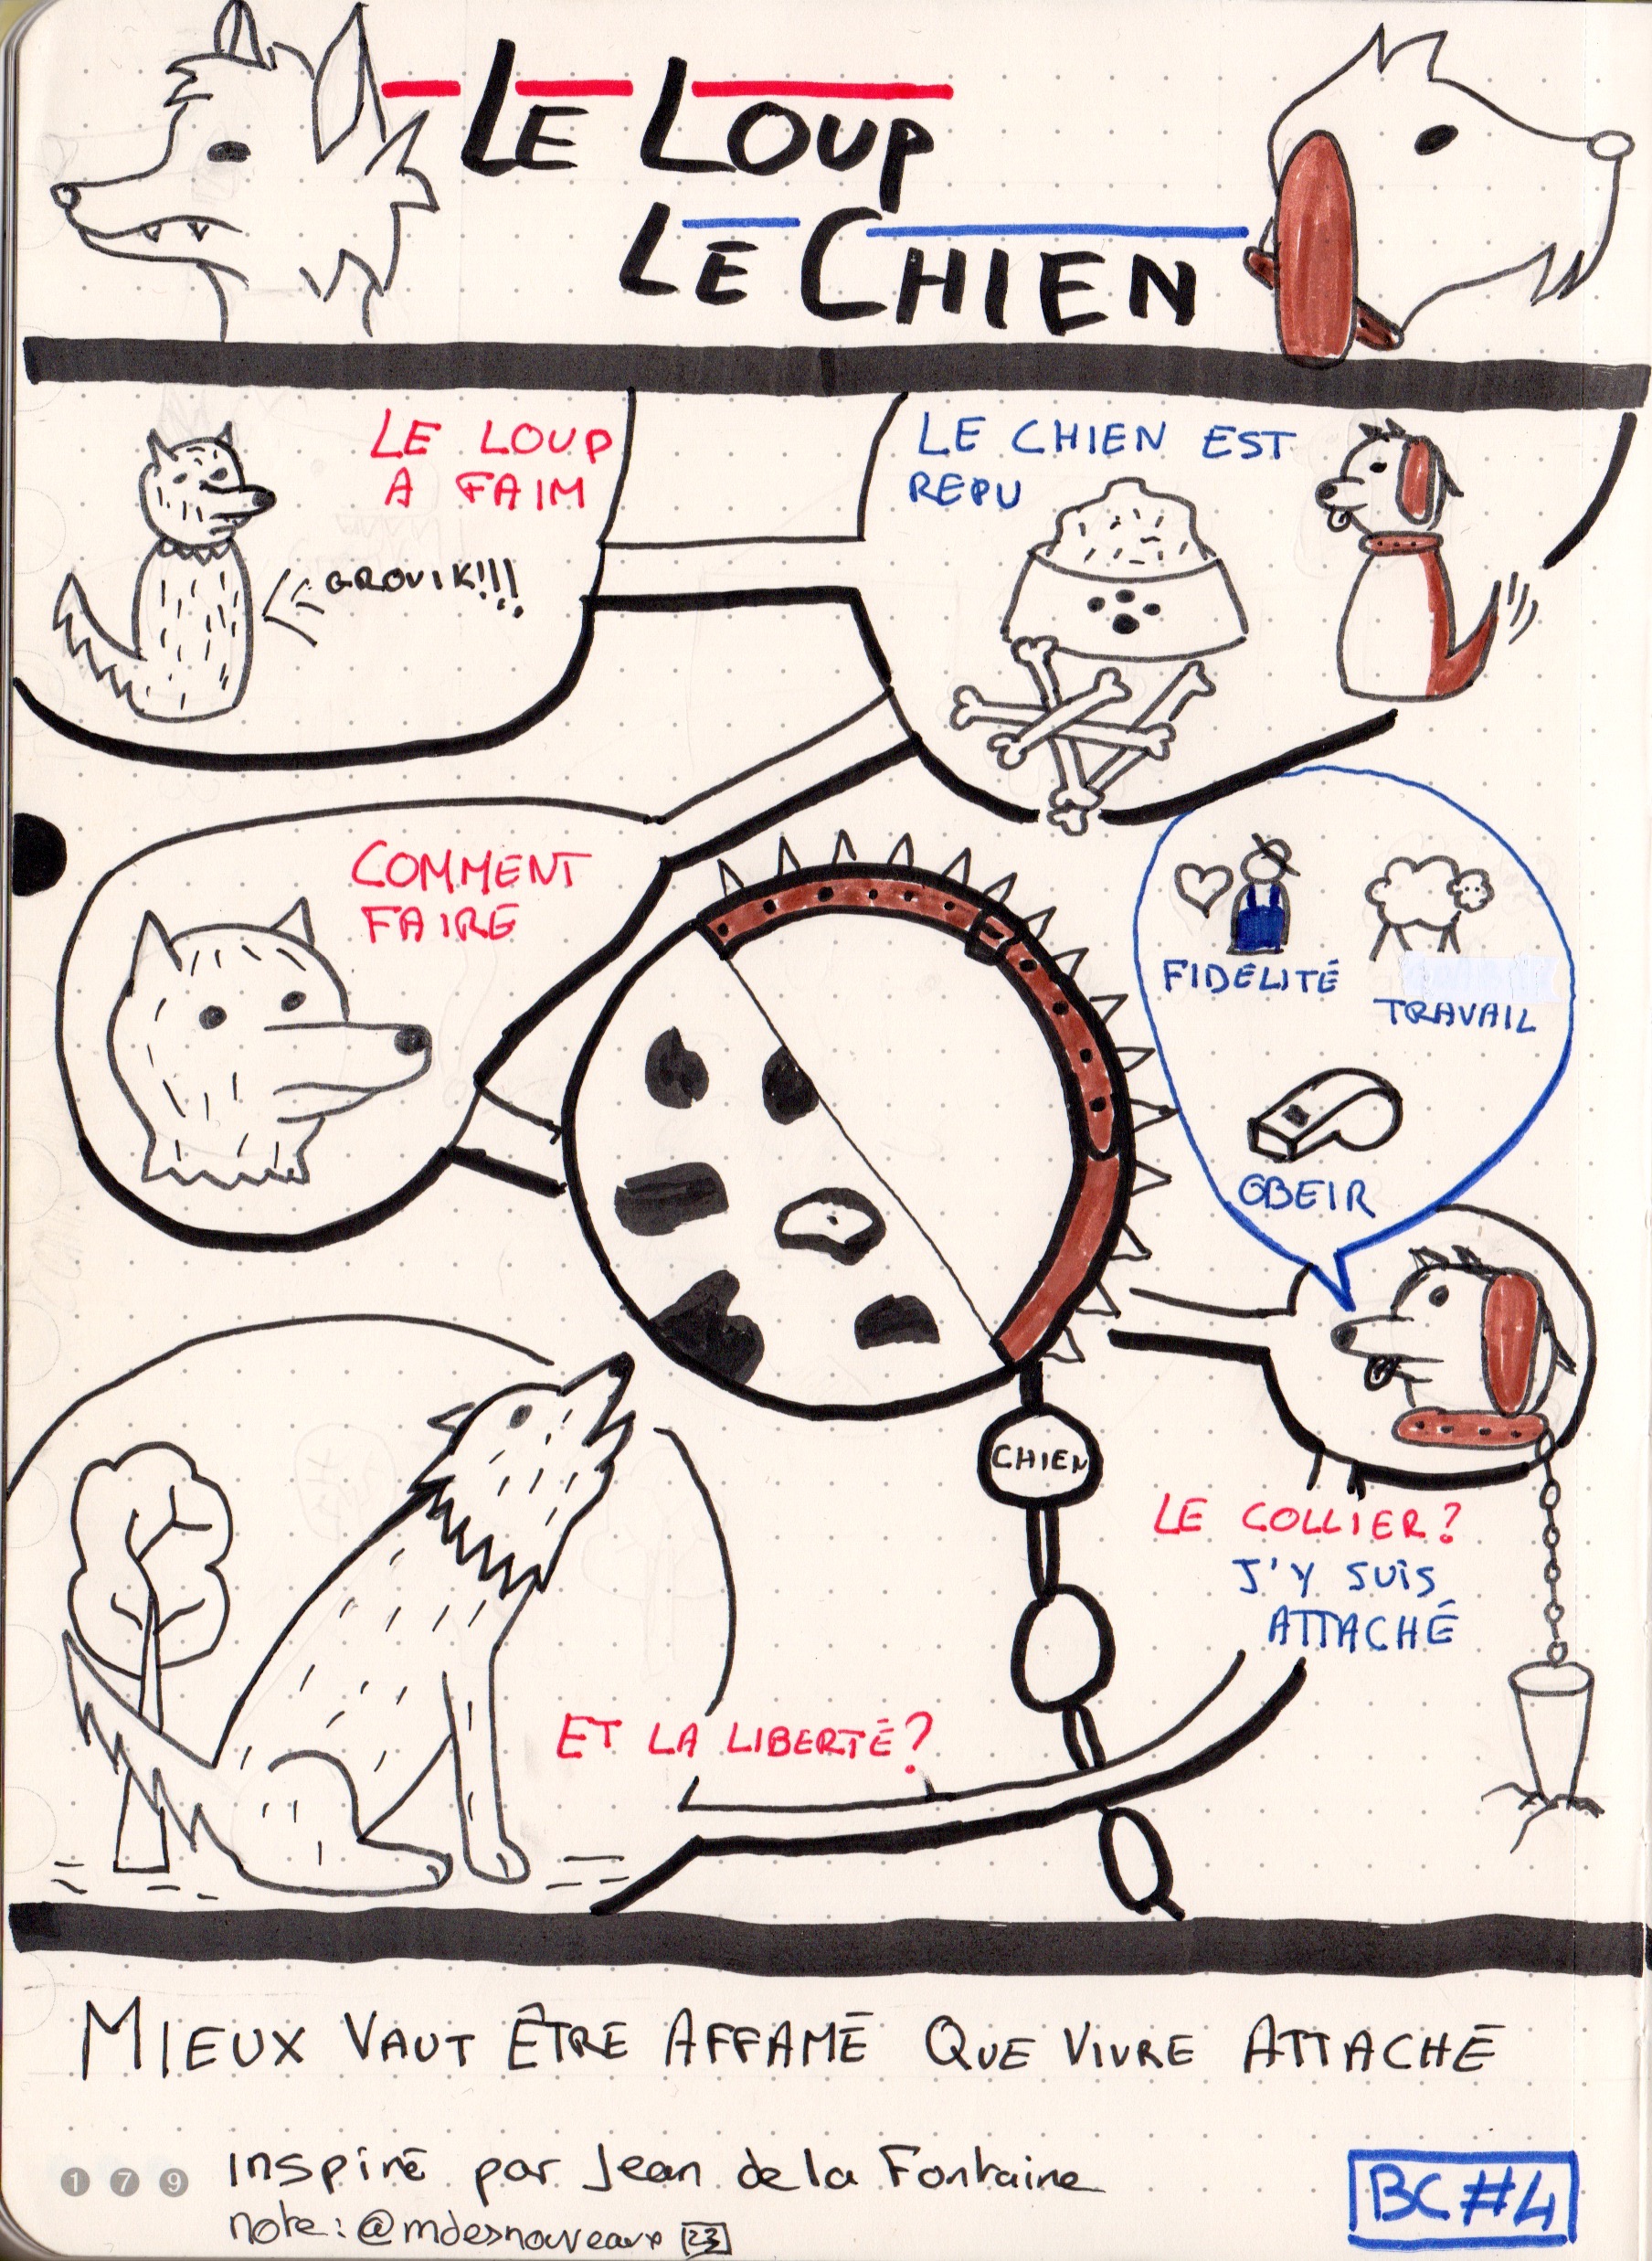 LE LOUP
LE CHIEN
LE LOUP
A FAIM
GROUIK!!!
LE CHIEN EST
REPU
COMMENT
FAIRE
FIDELITÉ
TRAVAIL
OBEIR
CHIEN
LE COLLIER?
J'Y SUIS
ATTACHÉ
ET LA LIBERTÉ?
MIEUX VAUT ÊTRE AFFAMÉ QUE VIVRE ATTACHÉ
Inspiré par Jean de la Fontaine
note: @mdesnouveaux 23
179
BC #4